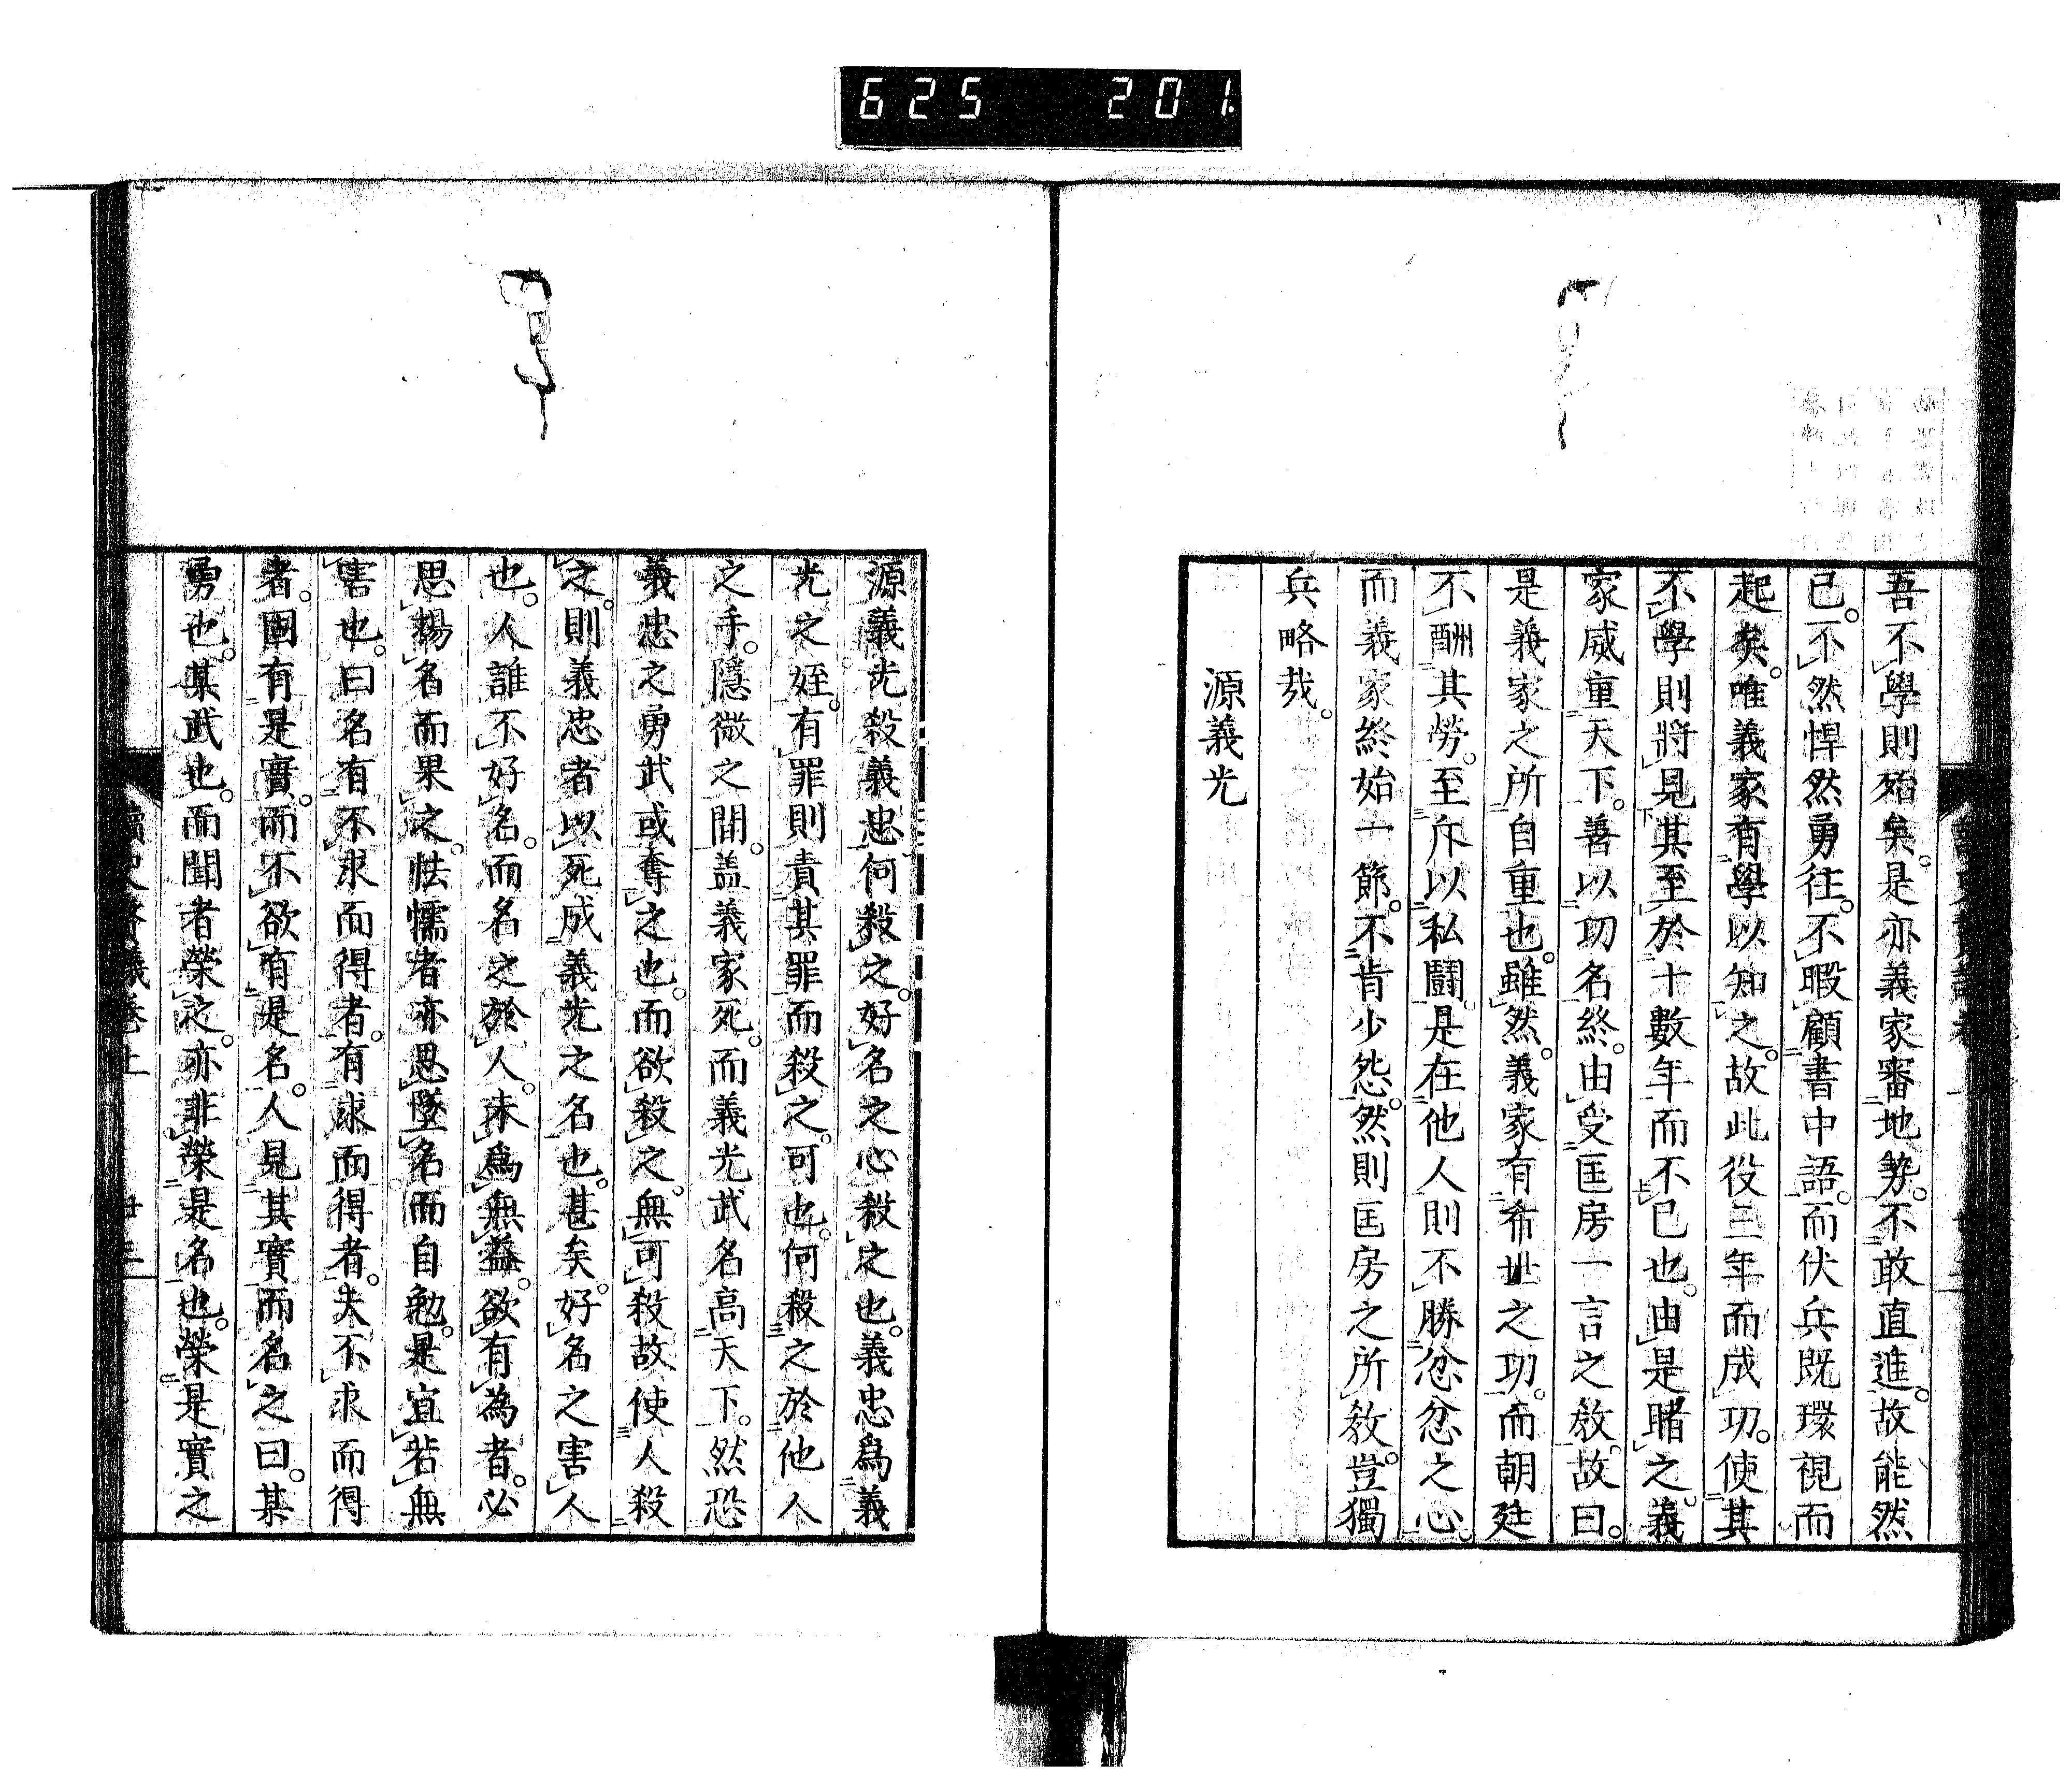 625 201
吾不學則殆矣。是亦義家審地勢。不敢直進。故能然
已。不然悍然勇往。不暇顧書中語。而伏兵既環視而
起矣。唯義家有學以知之。故此役三年而成功。使其
不學則將見其至於十數年而不已也。由是睹之。義
家威重天下。善以功名終。由受匡房一言之敎。故曰。
是義家之所自重也。雖然。義家有希世之功。而朝廷
不酬其勞。至斥以私鬪。是在他人則不勝忿忿之心。
而義家終始一節。不肯少怨。然則匡房之所敎。豈獨
兵略哉。
源義光
源義光殺義忠何殺之。好名之心殺之也。義忠爲義
光之姪。有罪則責其罪而殺之。可也。何殺之於他人
之手。隱微之間。盖義家死。而義光武名高天下。然恐
義忠之勇武或奪之也。而欲殺之。無可殺故使人殺
之。則義忠者以死成義光之名也。甚矣。好名之害人
也。人誰不好名。而名之於人。未爲無益。欲有為者。必
思揚名而果之。怯懦者亦思墜名而自勉。是宜若無
害也。曰名有不求而得者。有求而得者。夫不求而得
者。固有是實。而不欲有是名。人見其實而名之曰。某
勇也。某武也。而聞者榮之。亦非榮是名也。榮是實之
讀史贅議卷上 廿三